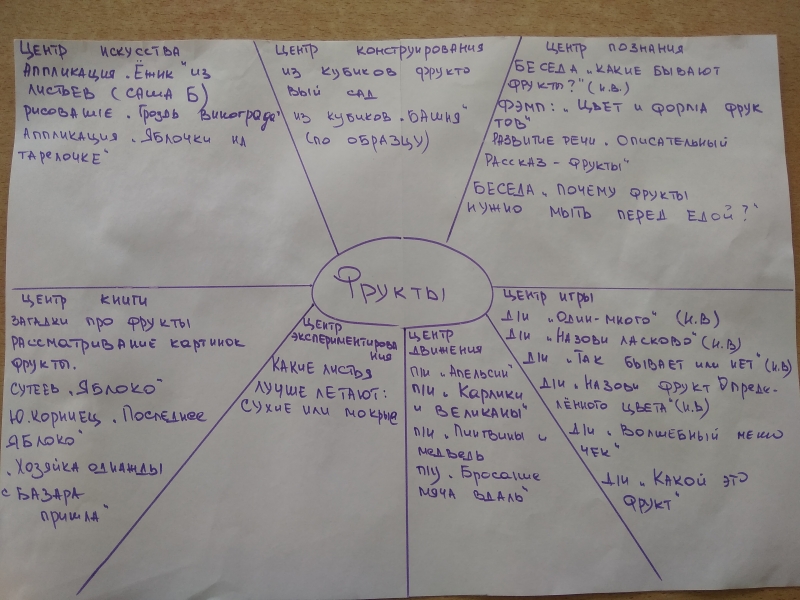 ЦЕНТР ИСКУССТВА
АППЛИКАЦИЯ „ЁЖИК" ИЗ
ЛИСТЬЕВ (САША Б)
РИСОВАНИЕ „ГРОЗДЬ ВИНОГРАДА"
АППЛИКАЦИЯ „ЯБЛОЧКИ НА
ТАРЕЛОЧКЕ"
ЦЕНТР КОНСТРУИРОВАНИЯ
ИЗ КУБИКОВ ФРУКТО
ВЫЙ САД
ИЗ КУБИКОВ „БАШНЯ"
(ПО ОБРАЗЦУ)
ЦЕНТР ПОЗНАНИЯ
БЕСЕДА „КАКИЕ БЫВАЮТ
ФРУКТЫ?" (И.В.)
ФЭМП: „ЦВЕТ И ФОРМА ФРУК
ТОВ"
РАЗВИТИЕ РЕЧИ „ОПИСАТЕЛЬНЫЙ
РАССКАЗ - ФРУКТЫ"
БЕСЕДА „ПОЧЕМУ ФРУКТЫ
НУЖНО МЫТЬ ПЕРЕД ЕДОЙ?"
ФРУКТЫ
ЦЕНТР КНИГИ
ЗАГАДКИ ПРО ФРУКТЫ
РАССМАТРИВАНИЕ КАРТИНОК
ФРУКТЫ.
СУТЕЕВ „ЯБЛОКО"
Ю.КОРИНЕЦ „ПОСЛЕДНЕЕ
ЯБЛОКО"
„ХОЗЯЙКА ОДНАЖДЫ
С БАЗАРА
ПРИШЛА"
ЦЕНТР
ЭКСПЕРИМЕНТИРОВА
НИЯ
КАКИЕ ЛИСТЬЯ
ЛУЧШЕ ЛЕТАЮТ:
СУХИЕ ИЛИ МОКРЫЕ
ЦЕНТР
ДВИЖЕНИЯ
П/И „АПЕЛЬСИН"
П/И „КАРЛИКИ
И ВЕЛИКАНЫ"
П/И „ПИНГВИНЫ И
МЕДВЕДЬ
П/У „БРОСАНИЕ
МЯЧА ВДАЛЬ"
ЦЕНТР ИГРЫ
Д/И „ОДИН-МНОГО" (И.В)
Д/И „НАЗОВИ ЛАСКОВО" (И.В)
Д/И „ТАК БЫВАЕТ ИЛИ НЕТ" (И.В)
Д/И „НАЗОВИ ФРУКТ ОПРЕДЕ-
ЛЁННОГО ЦВЕТА" (И.В)
Д/И „ВОЛШЕБНЫЙ МЕШО
ЧЕК"
Д/И „КАКОЙ ЭТО
ФРУКТ"